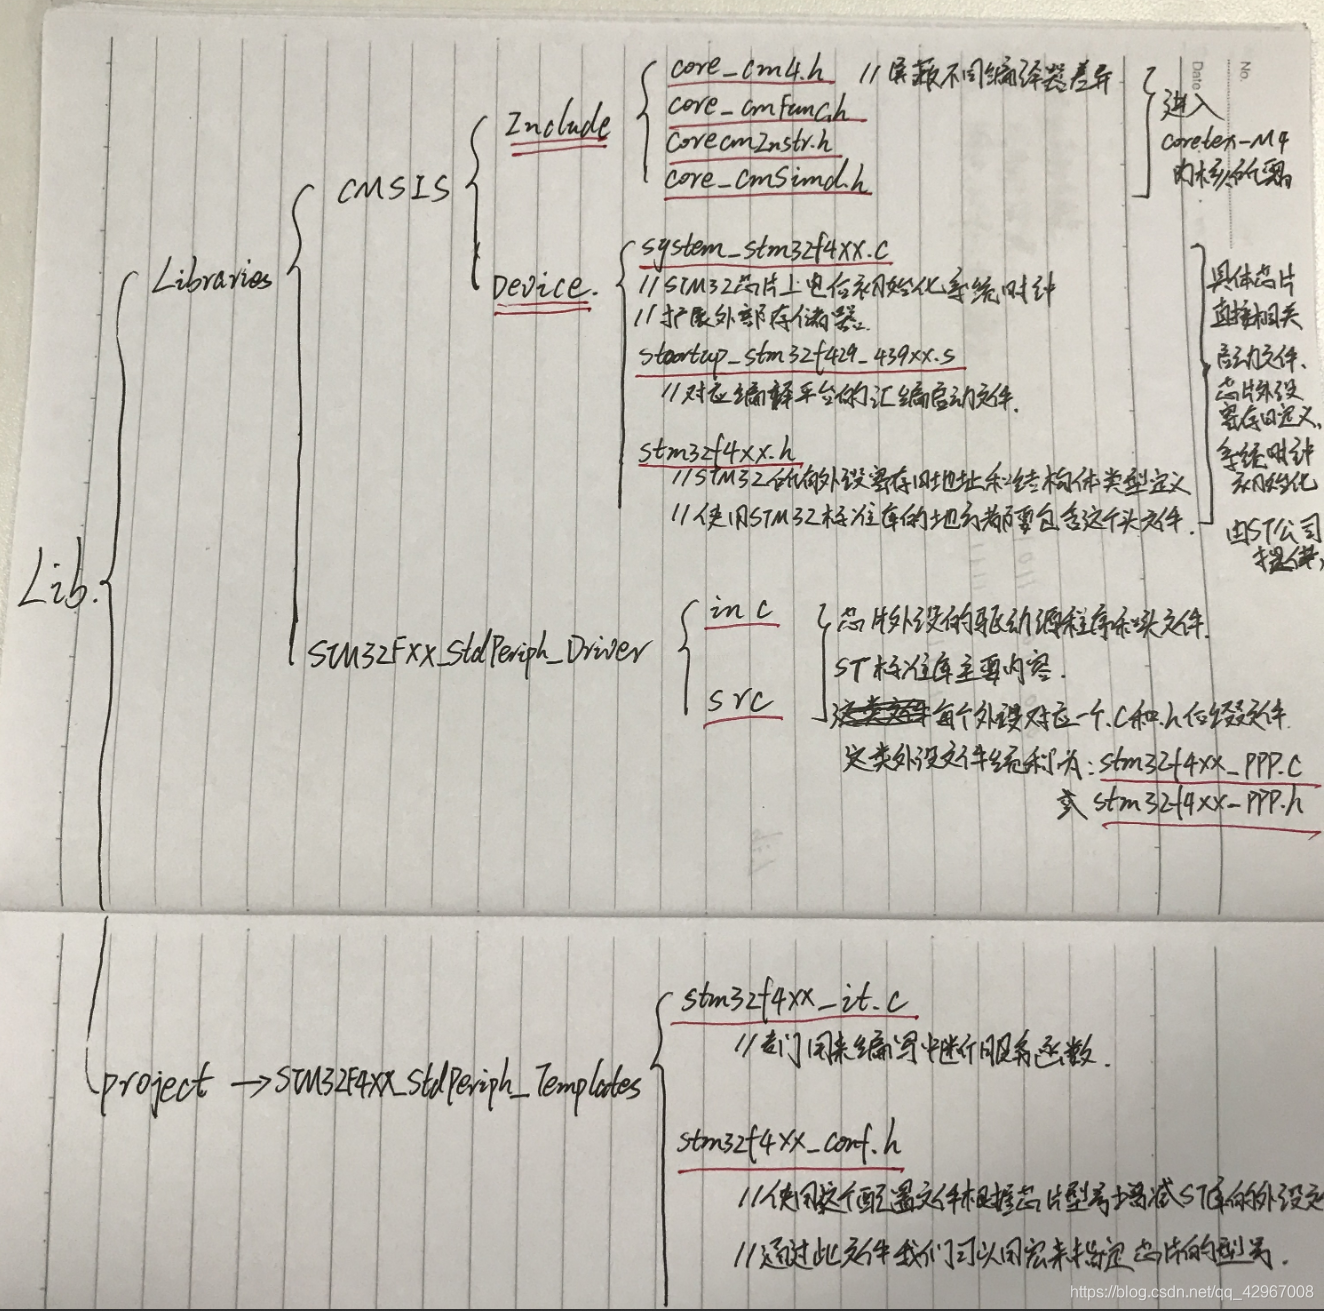 No.
Date
core_cm4.h //屏蔽不同编译器差异
core_cmFunc.h
corecmInstr.h
core_cmSimd.h
进入
coretex-M4
内核所需
Include
CMSIS
system_stm32f4xx.c
//STM32芯片上电后初始化系统时钟
//扩展外部存储器。
startup_stm32f429_439xx.s
//对应编译平台的汇编启动文件.
stm32f4xx.h
//STM32所有外设寄存器地址和结构体类型定义
//使用STM32标准库的地方都要包含这个头文件.
Device.
具体芯片
直接相关
启动文件、
芯片外设
寄存器定义,
系统时钟
初始化
由ST公司
提供,
Libraries
Lib.
STM32FXX_StdPeriph_Driver
inc
src
芯片外设的驱动源程序和头文件.
ST标准库主要内容.
每个外设对应一个.c和.h后缀文件
这类外设文件统称为:stm32f4xx_PPP.c
或 stm32f4xx_PPP.h
project →STM32F4XX_StdPeriph_Templates
stm32f4xx_it.c
//专门用来编写中断服务函数.
stm32f4xx_conf.h
//使用这个配置文件根据芯片型号增减ST库的外设文
//通过此文件我们可以用宏来指定芯片的型号.
https://blog.csdn.net/qq_42967008